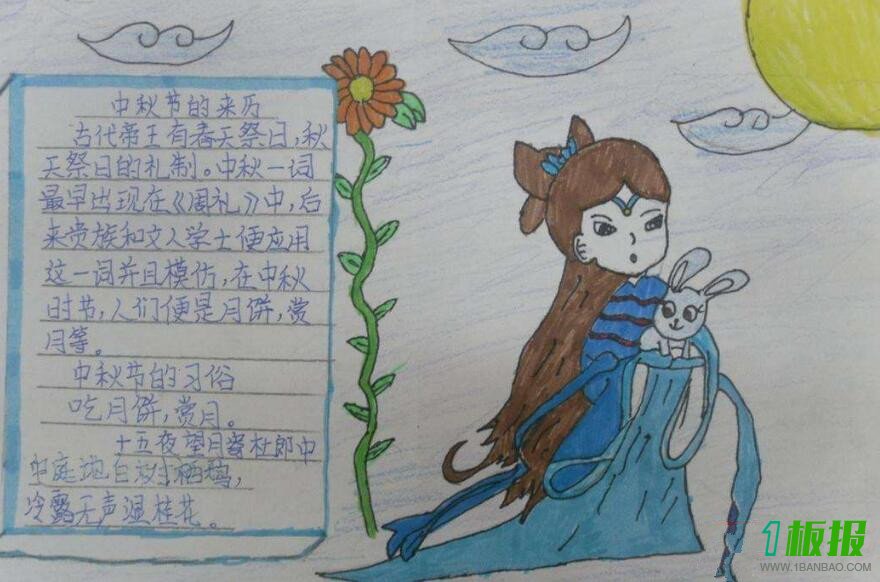 中秋节的来历
古代帝王有春天祭日,秋
天祭日的礼制。中秋一词
最早出现在《周礼》中,后
来贵族和文人学士便应用
这一词并且模仿,在中秋
时节,人们便是月饼,赏
月等。
中秋节的习俗
吃月饼,赏月。
十五夜望月寄杜郎中
中庭地白树栖鸦,
冷露无声湿桂花。
1板报
WWW.1BANBAO.COM